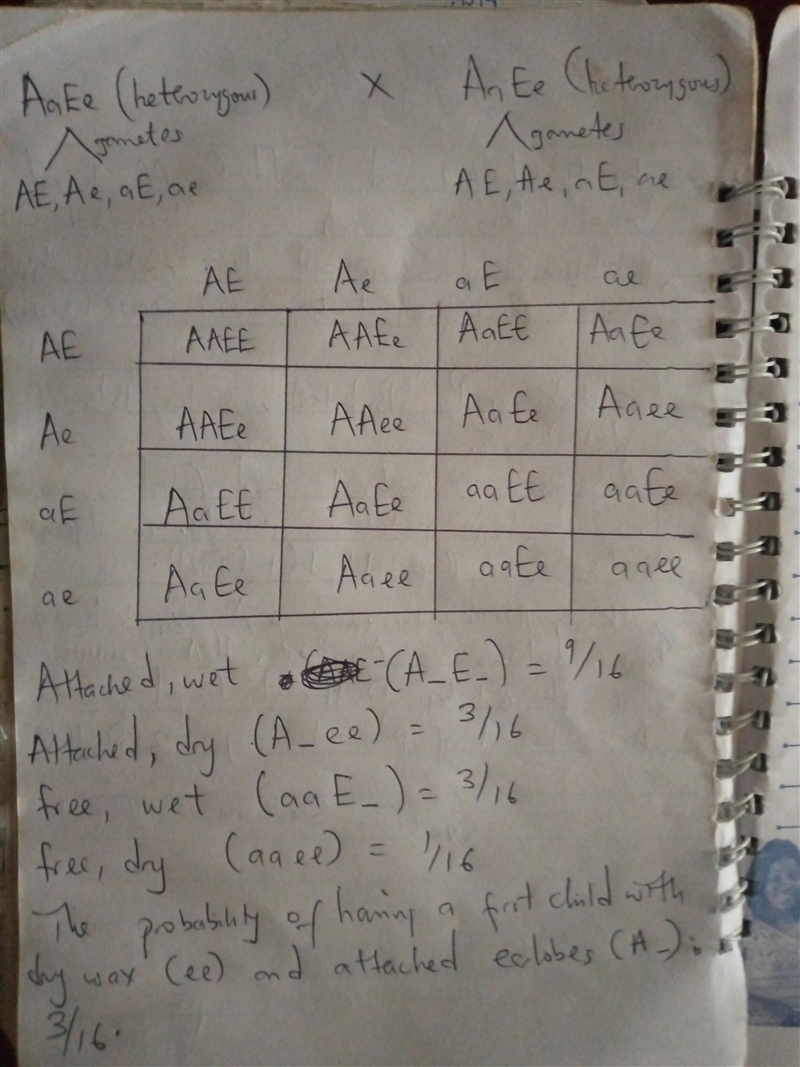 AaEe (heterozygous) X AaEe (heterozygous)
gametes gametes
AE, Ae, aE, ae AE, Ae, aE, ae
AE Ae aE ae
AE AAEE AAEe AaEE AaEe
Ae AAEe AAee AaEe Aaee
aE AaEE AaEe aaEE aaEe
ae AaEe Aaee aaEe aaee
Attached, wet (A_E_) = 9/16
Attached, dry (A_ee) = 3/16
free, wet (aaE_) = 3/16
free, dry (aaee) = 1/16
The probability of having a first child with
dry wax (ee) and attached earlobes (A_):
3/16.